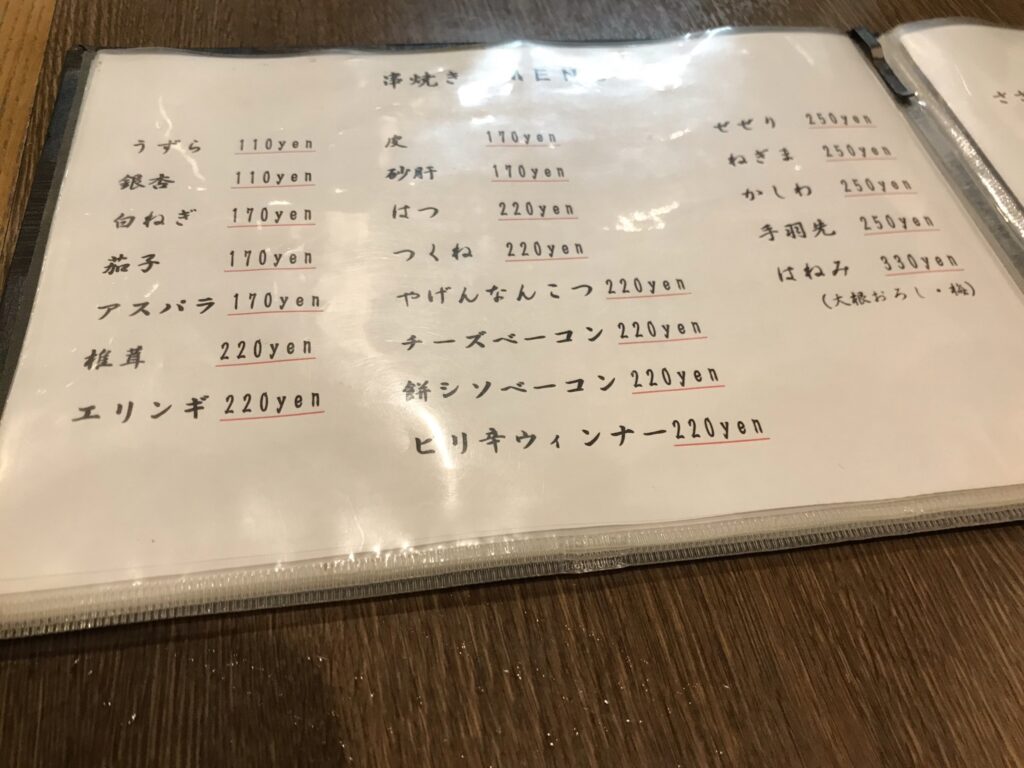 串焼き MEN
うずら 110yen
銀杏 110yen
白ねぎ 170yen
茄子 170yen
アスパラ 170yen
椎茸 220yen
エリンギ 220yen
皮 170yen
砂肝 170yen
はつ 220yen
つくね 220yen
やげんなんこつ 220yen
チーズベーコン 220yen
餅シソベーコン 220yen
ピリ辛ウィンナー 220yen
せせり 250yen
ねぎま 250yen
かしわ 250yen
手羽先 250yen
はねみ 330yen
(大根おろし・梅)
ささ